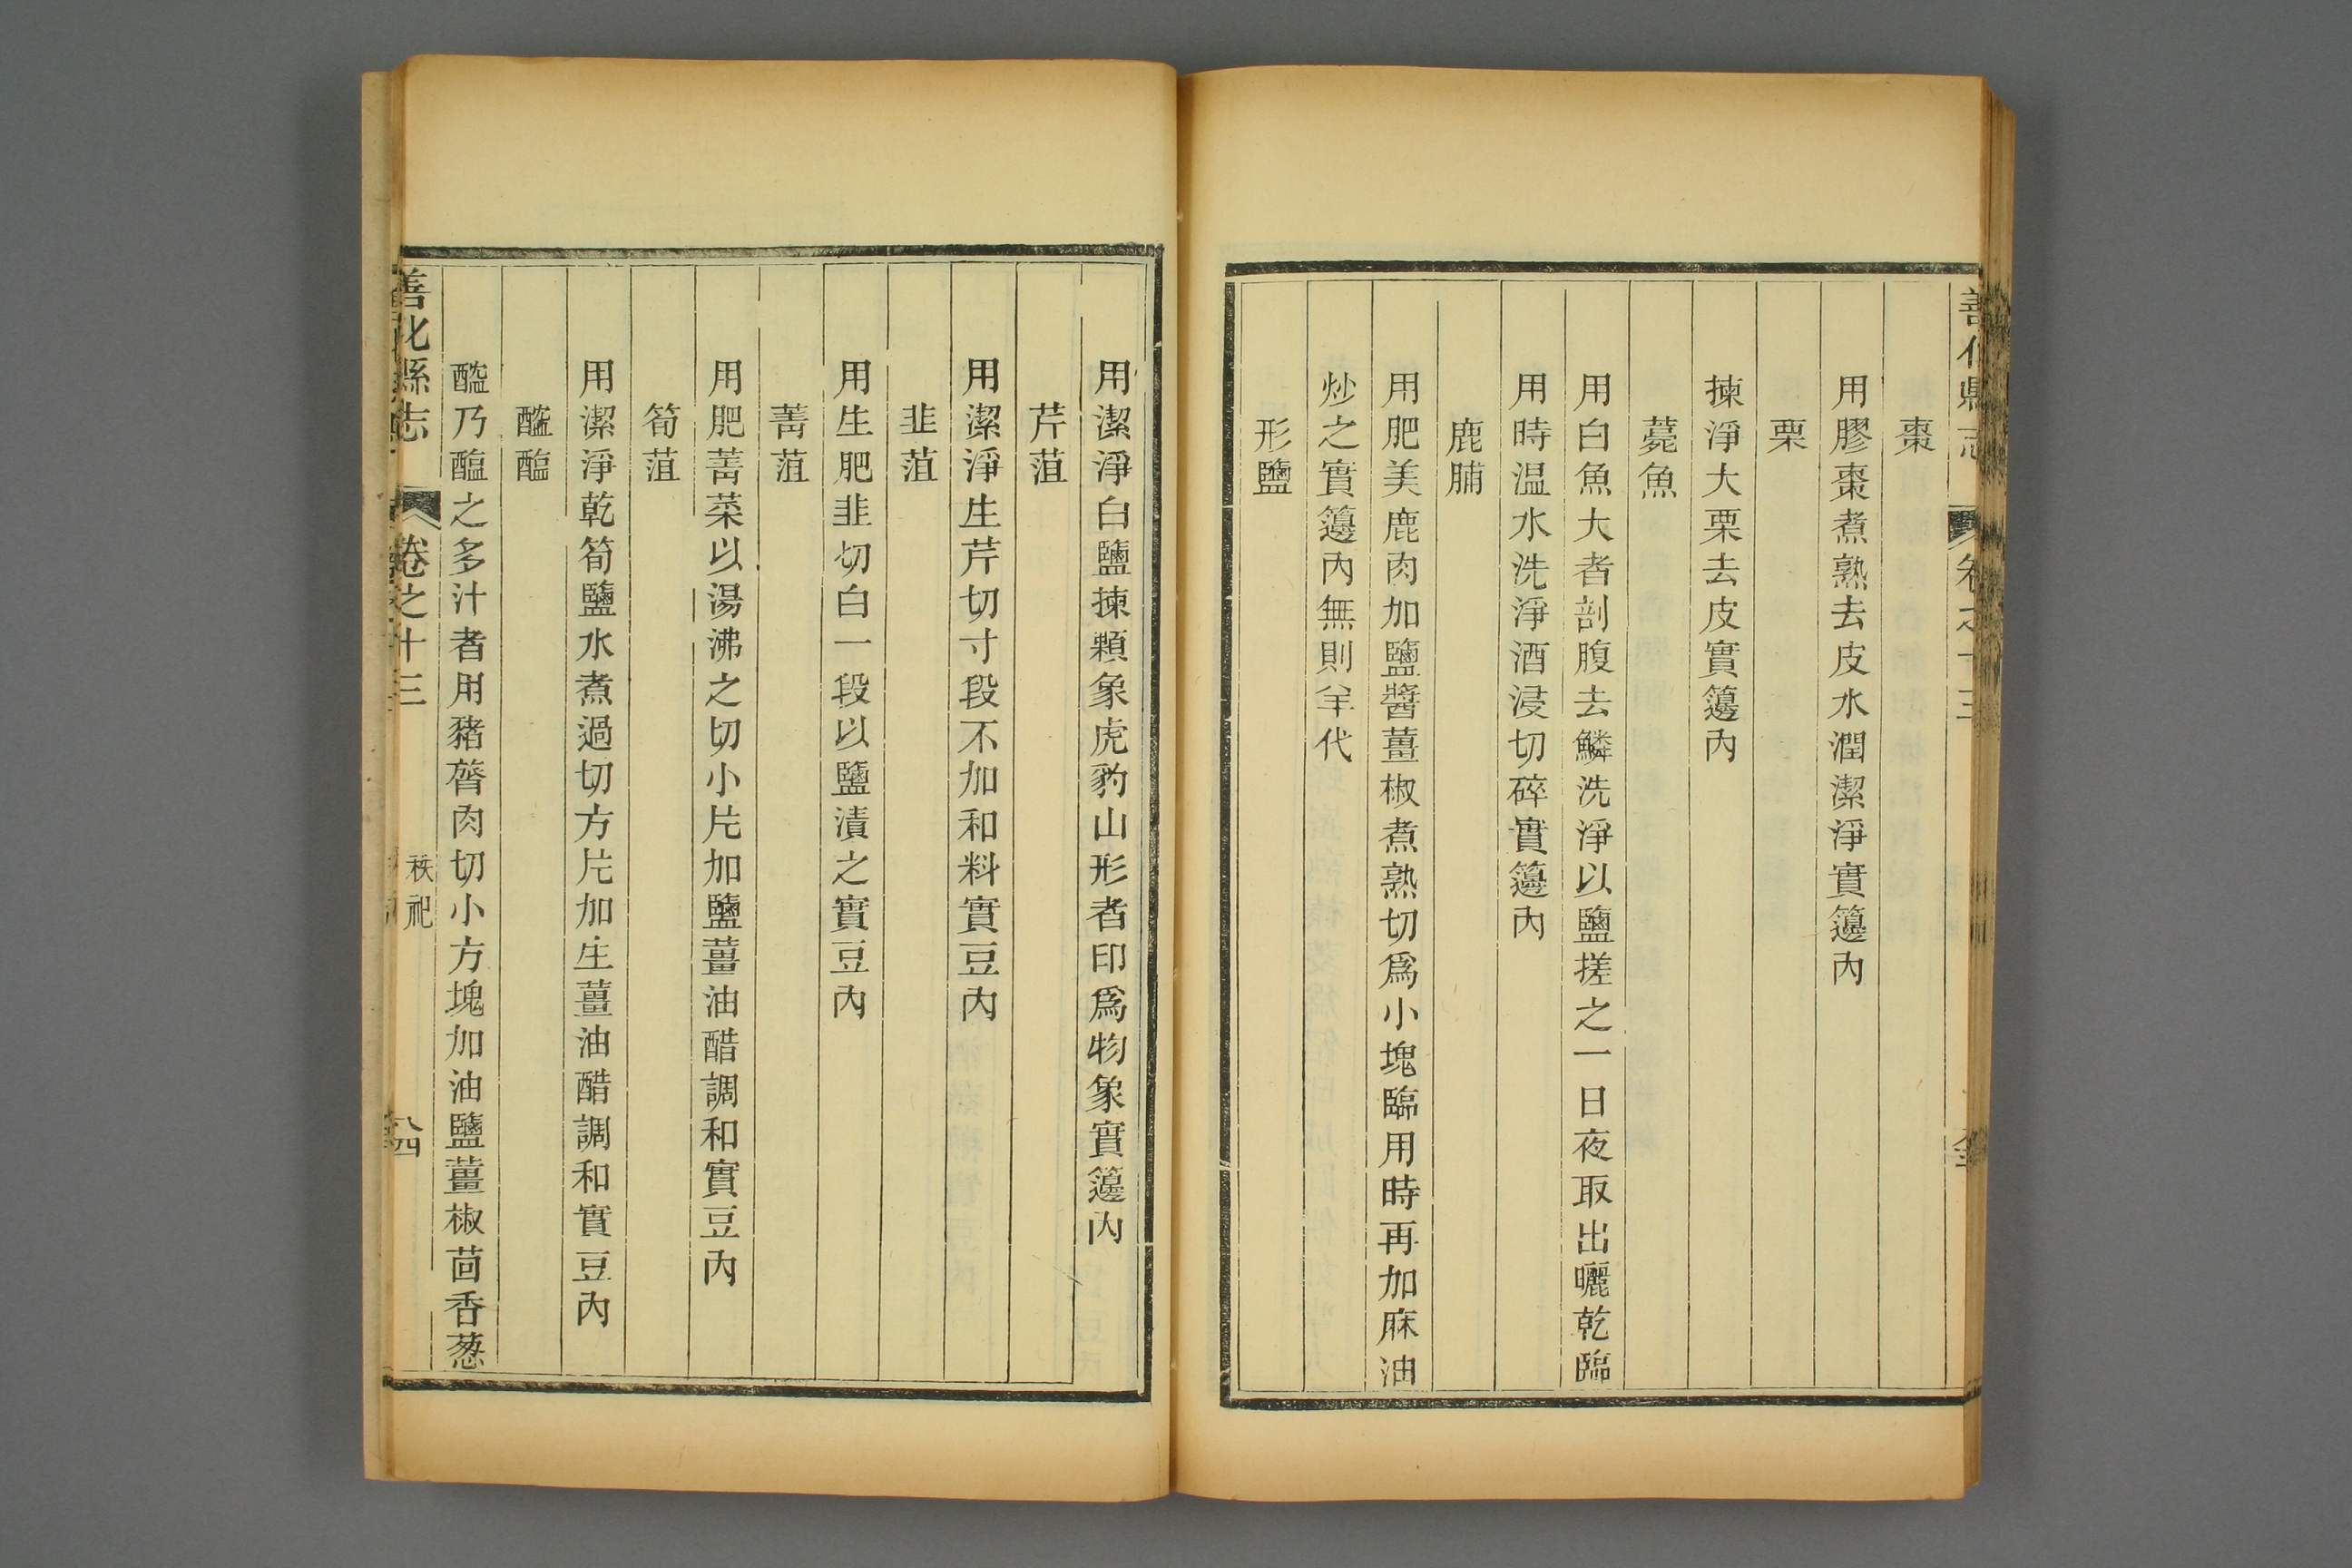 棗
用膠棗煮熟去皮水潤潔淨實籩內
栗
揀淨大栗去皮實籩內
薧魚
用白魚大者剖腹去鱗洗淨以鹽搓之一日夜取出曬乾臨
用時温水洗淨酒浸切碎實籩內
鹿脯
用肥美鹿肉加鹽醬薑椒煮熟切爲小塊臨用時再加麻油
炒之實籩內無則羊代
形鹽
用潔淨白鹽揀顆象虎豹山形者印爲物象實籩內
芹菹
用潔淨生芹切寸段不加和料實豆內
韭菹
用生肥韭切白一段以鹽漬之實豆內
菁菹
用肥菁菜以湯沸之切小片加鹽薑油醋調和實豆內
筍菹
用潔淨乾筍鹽水煮過切方片加生薑油醋調和實豆內
醓醢
醓乃醢之多汁者用豬膂肉切小方塊加油鹽薑椒茴香葱
善化縣志 卷之十三 秩祀 八四